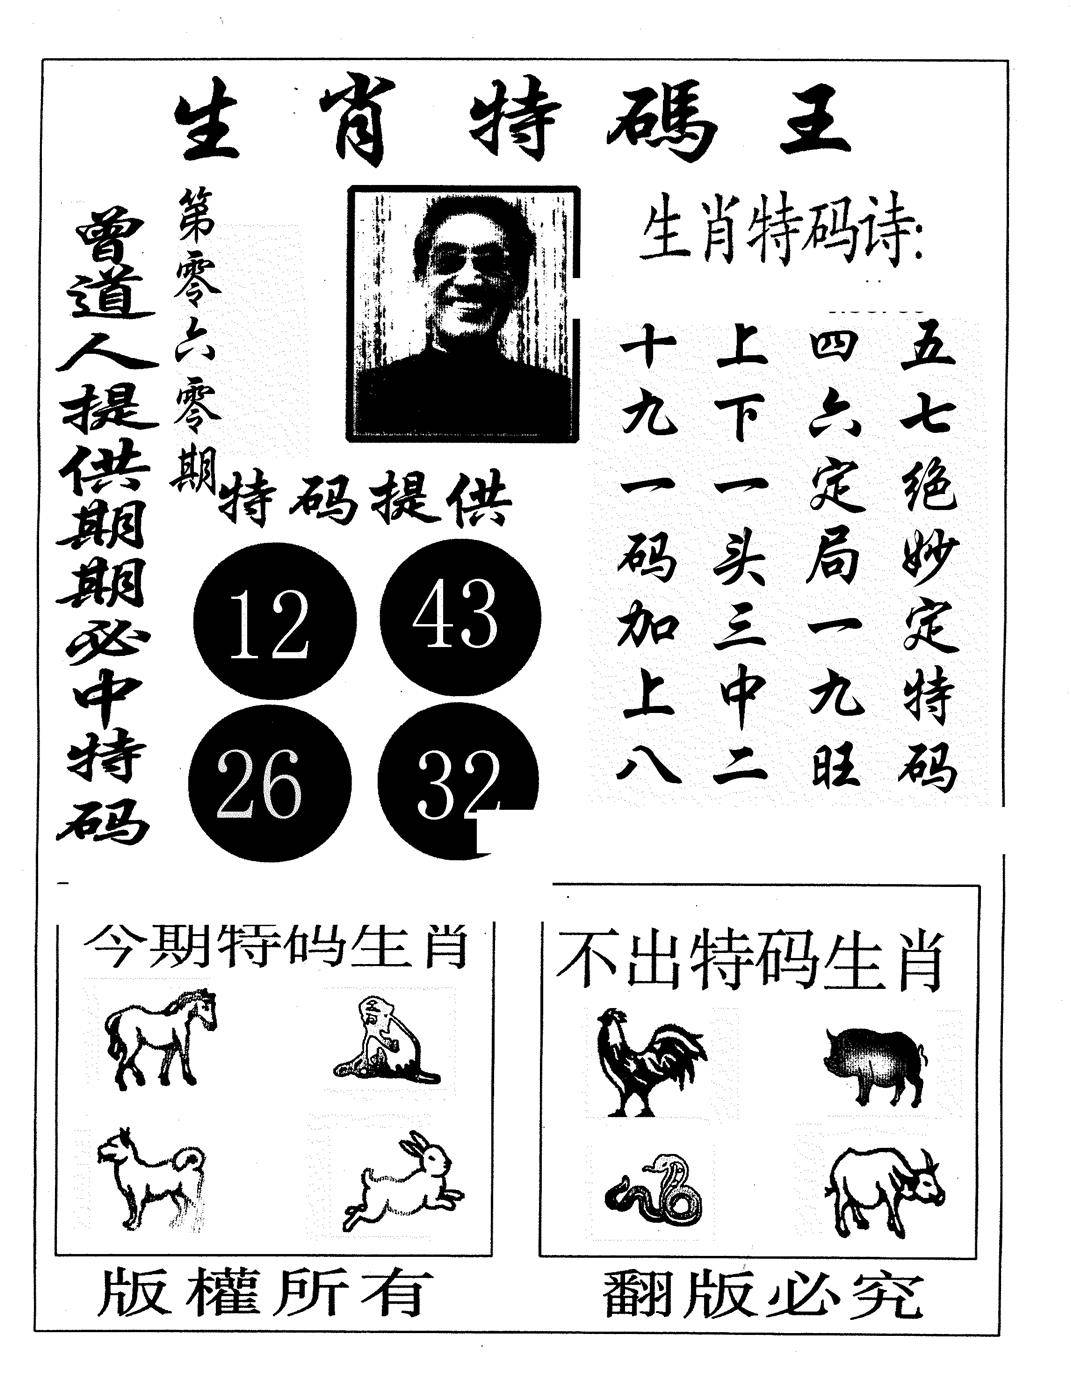 生肖特碼王
曾道人提供期期必中特码
第零六零期
生肖特码诗:
五七绝妙定特码
四六定局一九旺
上下一头三中二
十九一码加上八
特码提供
12 43
26 32
今期特码生肖
不出特码生肖
版權所有
翻版必究